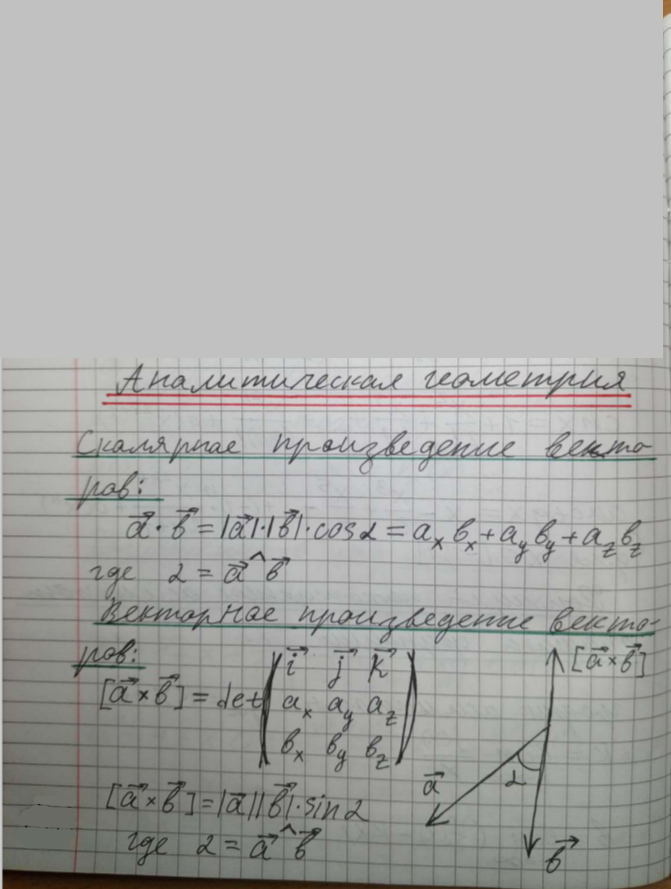 Аналитическая геометрия
Скалярное произведение векто
ров:
a⃗ · b⃗ = |a⃗|·|b⃗|·cos α = aₓ bₓ + a_y b_y + a_z b_z
где α = a⃗ ^ b⃗
Векторное произведение векто-
ров:
[a⃗ × b⃗] = det
( i⃗ j⃗ k⃗
aₓ a_y a_z
bₓ b_y b_z )
[a⃗ × b⃗]
a⃗
α
b⃗
[a⃗ × b⃗] = |a⃗||b⃗|·sin α
где α = a⃗ ^ b⃗